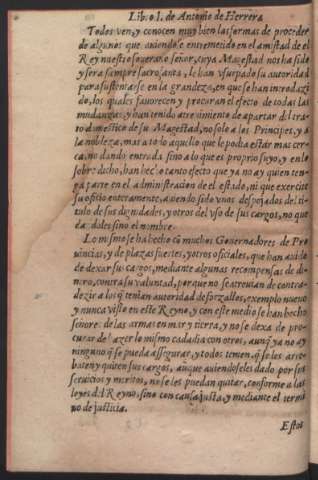 Libro I. de Antonio de Herrera
Todos ven, y conocen muy bien las formas de proceder
de algunos que auiendose entremetido en el amistad de el
Rey nuestro soberano señor, cuya Magestad nos ha sido
y sera siempre sacrosanta, le han vsurpado su autoridad
para sustentarse en la grandeza, en que se han introduzi
do, los quales fauorecen y procuran el efecto de todas las
mudanças, y han tenido atreuimiento de apartar del tra
to domestico de su Magestad, no solo a los Principes, y a
la nobleza, mas a todo aquello que le podia estar mas cer
ca, no dando entrada sino a lo que es proprio suyo, y en lo
sobredicho, han hecho tanto efecto que ya no ay quien ten
ga parte en el administracion de el estado, ni que exercite
su oficio enteramente, auiendo sido vnos despojados del ti
tulo de sus dignidades, y otros del vso de sus cargos, no que
dandoles sino el nombre
Lo mismo se ha hecho cõ muchos Gouernadores de Pro
uincias, y de plazas fuertes, y otros oficiales, que han auido
de dexar sus cargos, mediante algunas recompensas de di
nero, contra su voluntad, porque no se atreuian de contra-
dezir a los q̃ tenian autoridad de forzallos, exemplo nueuo
y nunca visto en este Reyno, y con este medio se han hecho
señores de las armas en mar y tierra, y no se dexa de pro-
curar de hazer lo mismo cada dia con otros, aunq̃ ya no ay
ninguno q̃ se pueda assegurar, y todos temen q̃ se les arre-
baten y quiten sus cargos, aunque auiendoseles dado por sus
seruicios y meritos, no se les puedan quitar, conforme a las
leyes dl Reyno, sino con causa justa, y mediante el termi
no de justicia.
Estos